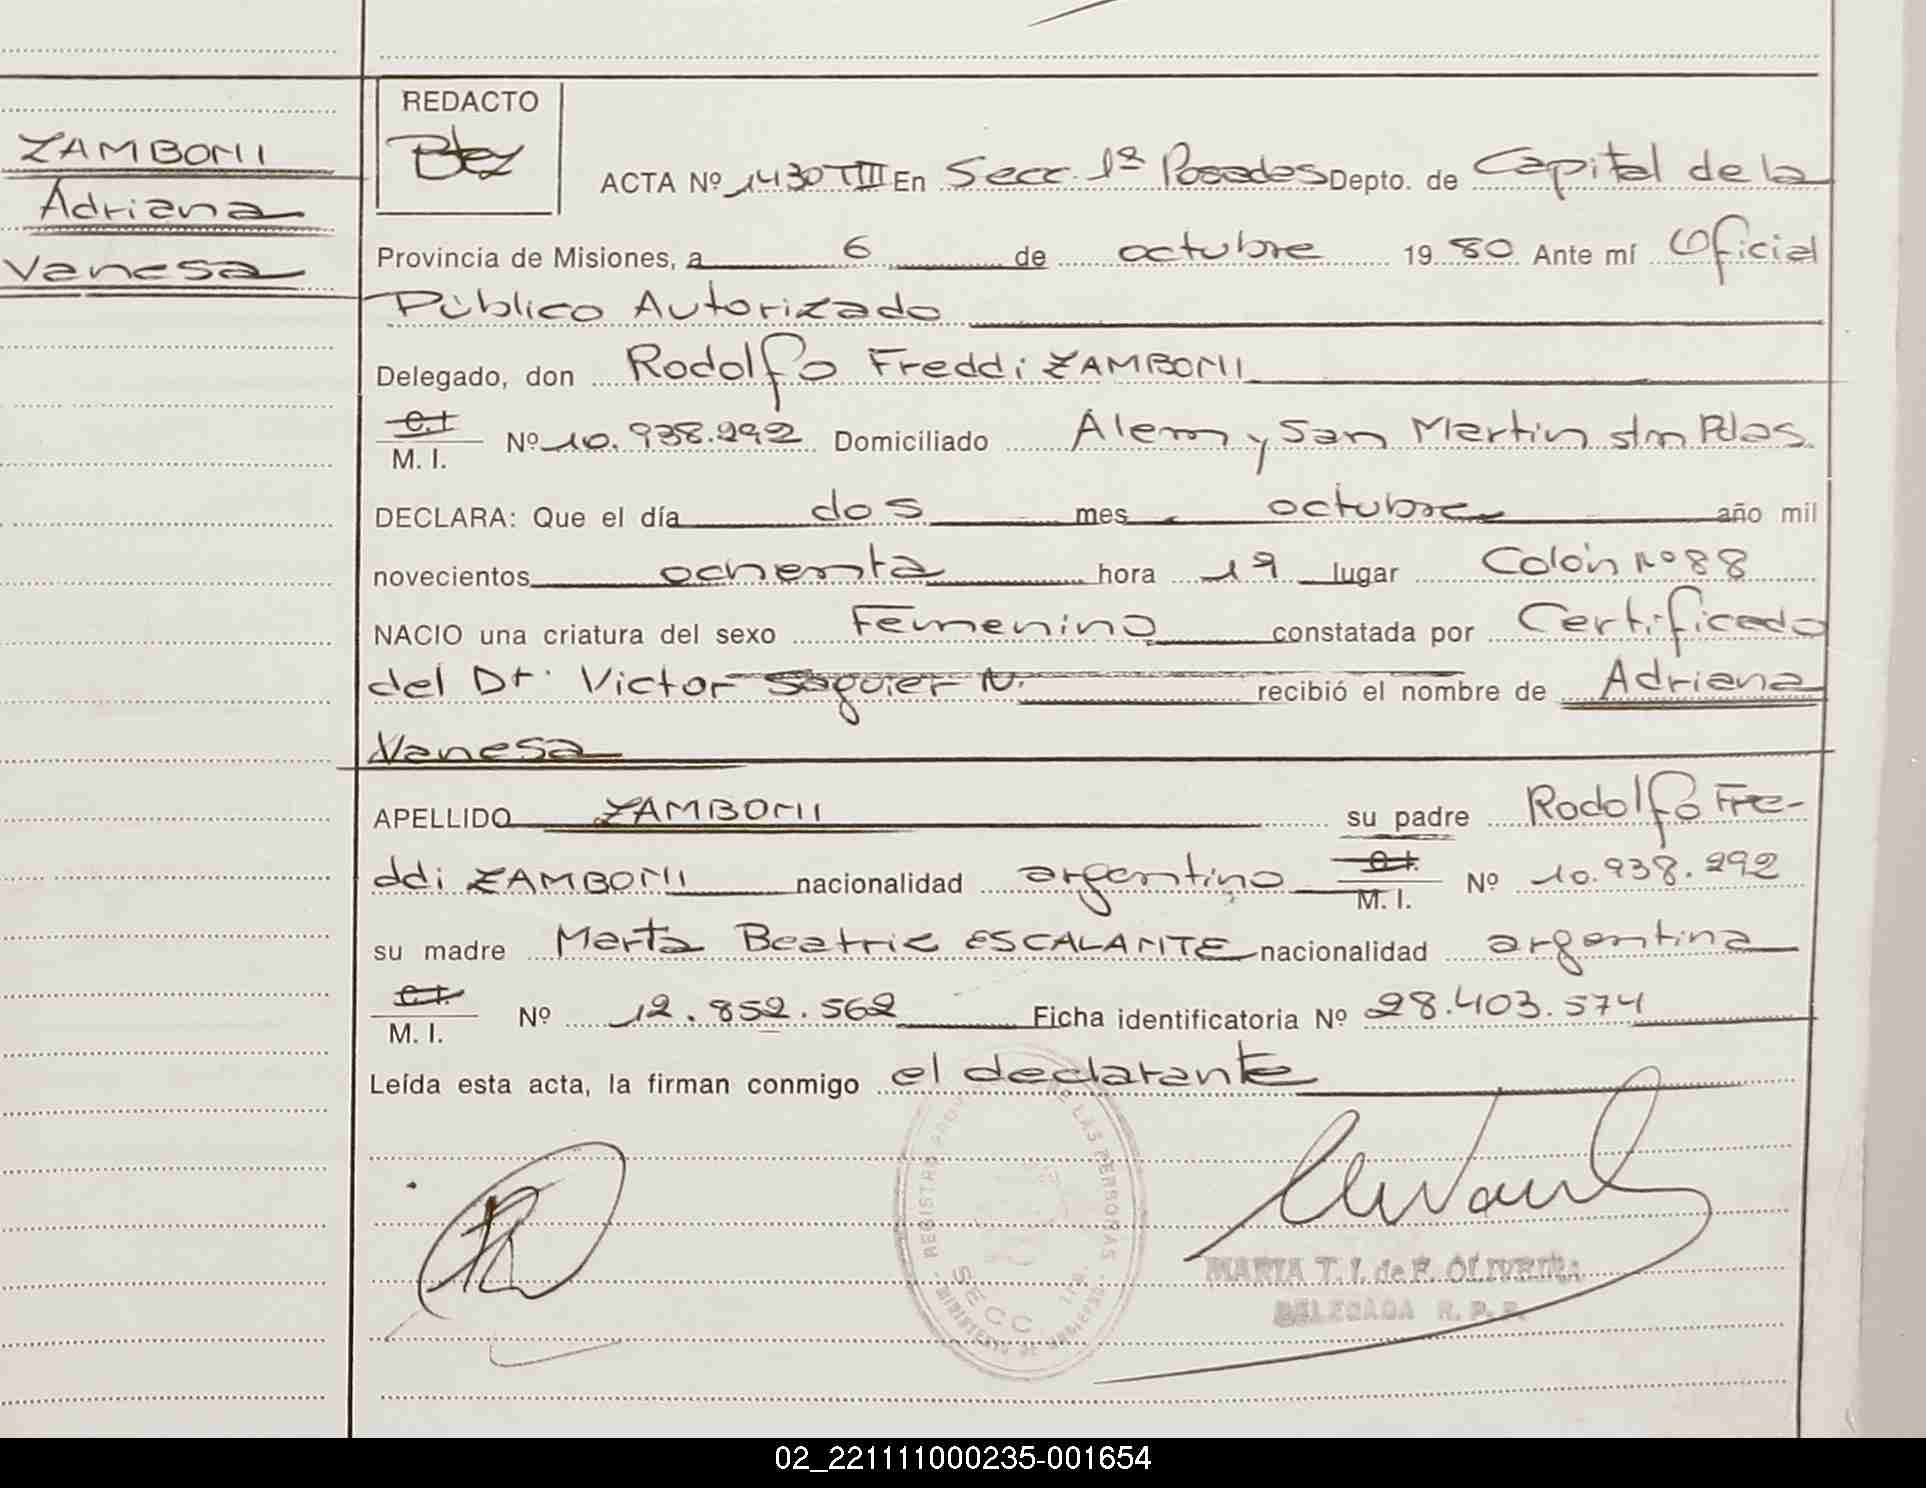 ZAMBONI
Adriana
Vanesa
REDACTO
ACTA Nº 1430 TIII En Secc. 1ª Posadas Depto. de Capital de la
Provincia de Misiones, a 6 de octubre 1980 Ante mí Oficial
Público Autorizado
Delegado, don Rodolfo Freddi ZAMBONI
C.I. M. I. Nº 10.938.292 Domiciliado Alem y San Martin s/n Pdas.
DECLARA: Que el día dos mes octubre año mil
novecientos ochenta hora 19 lugar Colón Nº 88
NACIO una criatura del sexo Femenino constatada por Certificado
del Dr. Victor Saguier N. recibió el nombre de Adriana
Vanesa
APELLIDO ZAMBONI su padre Rodolfo Fre-
ddi ZAMBONI nacionalidad argentino C.I. M. I. Nº 10.938.292
su madre Marta Beatriz ESCALANTE nacionalidad argentina
C.I. M. I. Nº 12.852.562 Ficha identificatoria Nº 28.403.574
Leída esta acta, la firman conmigo el declarante
REGISTRO PROV LAS PERSONAS
SECC. 1ra.
MINISTERIO DE GOBIERNO
MARIA T. I. de F. OLIVEIRA
DELEGADA R. P. P.
02_221111000235-001654